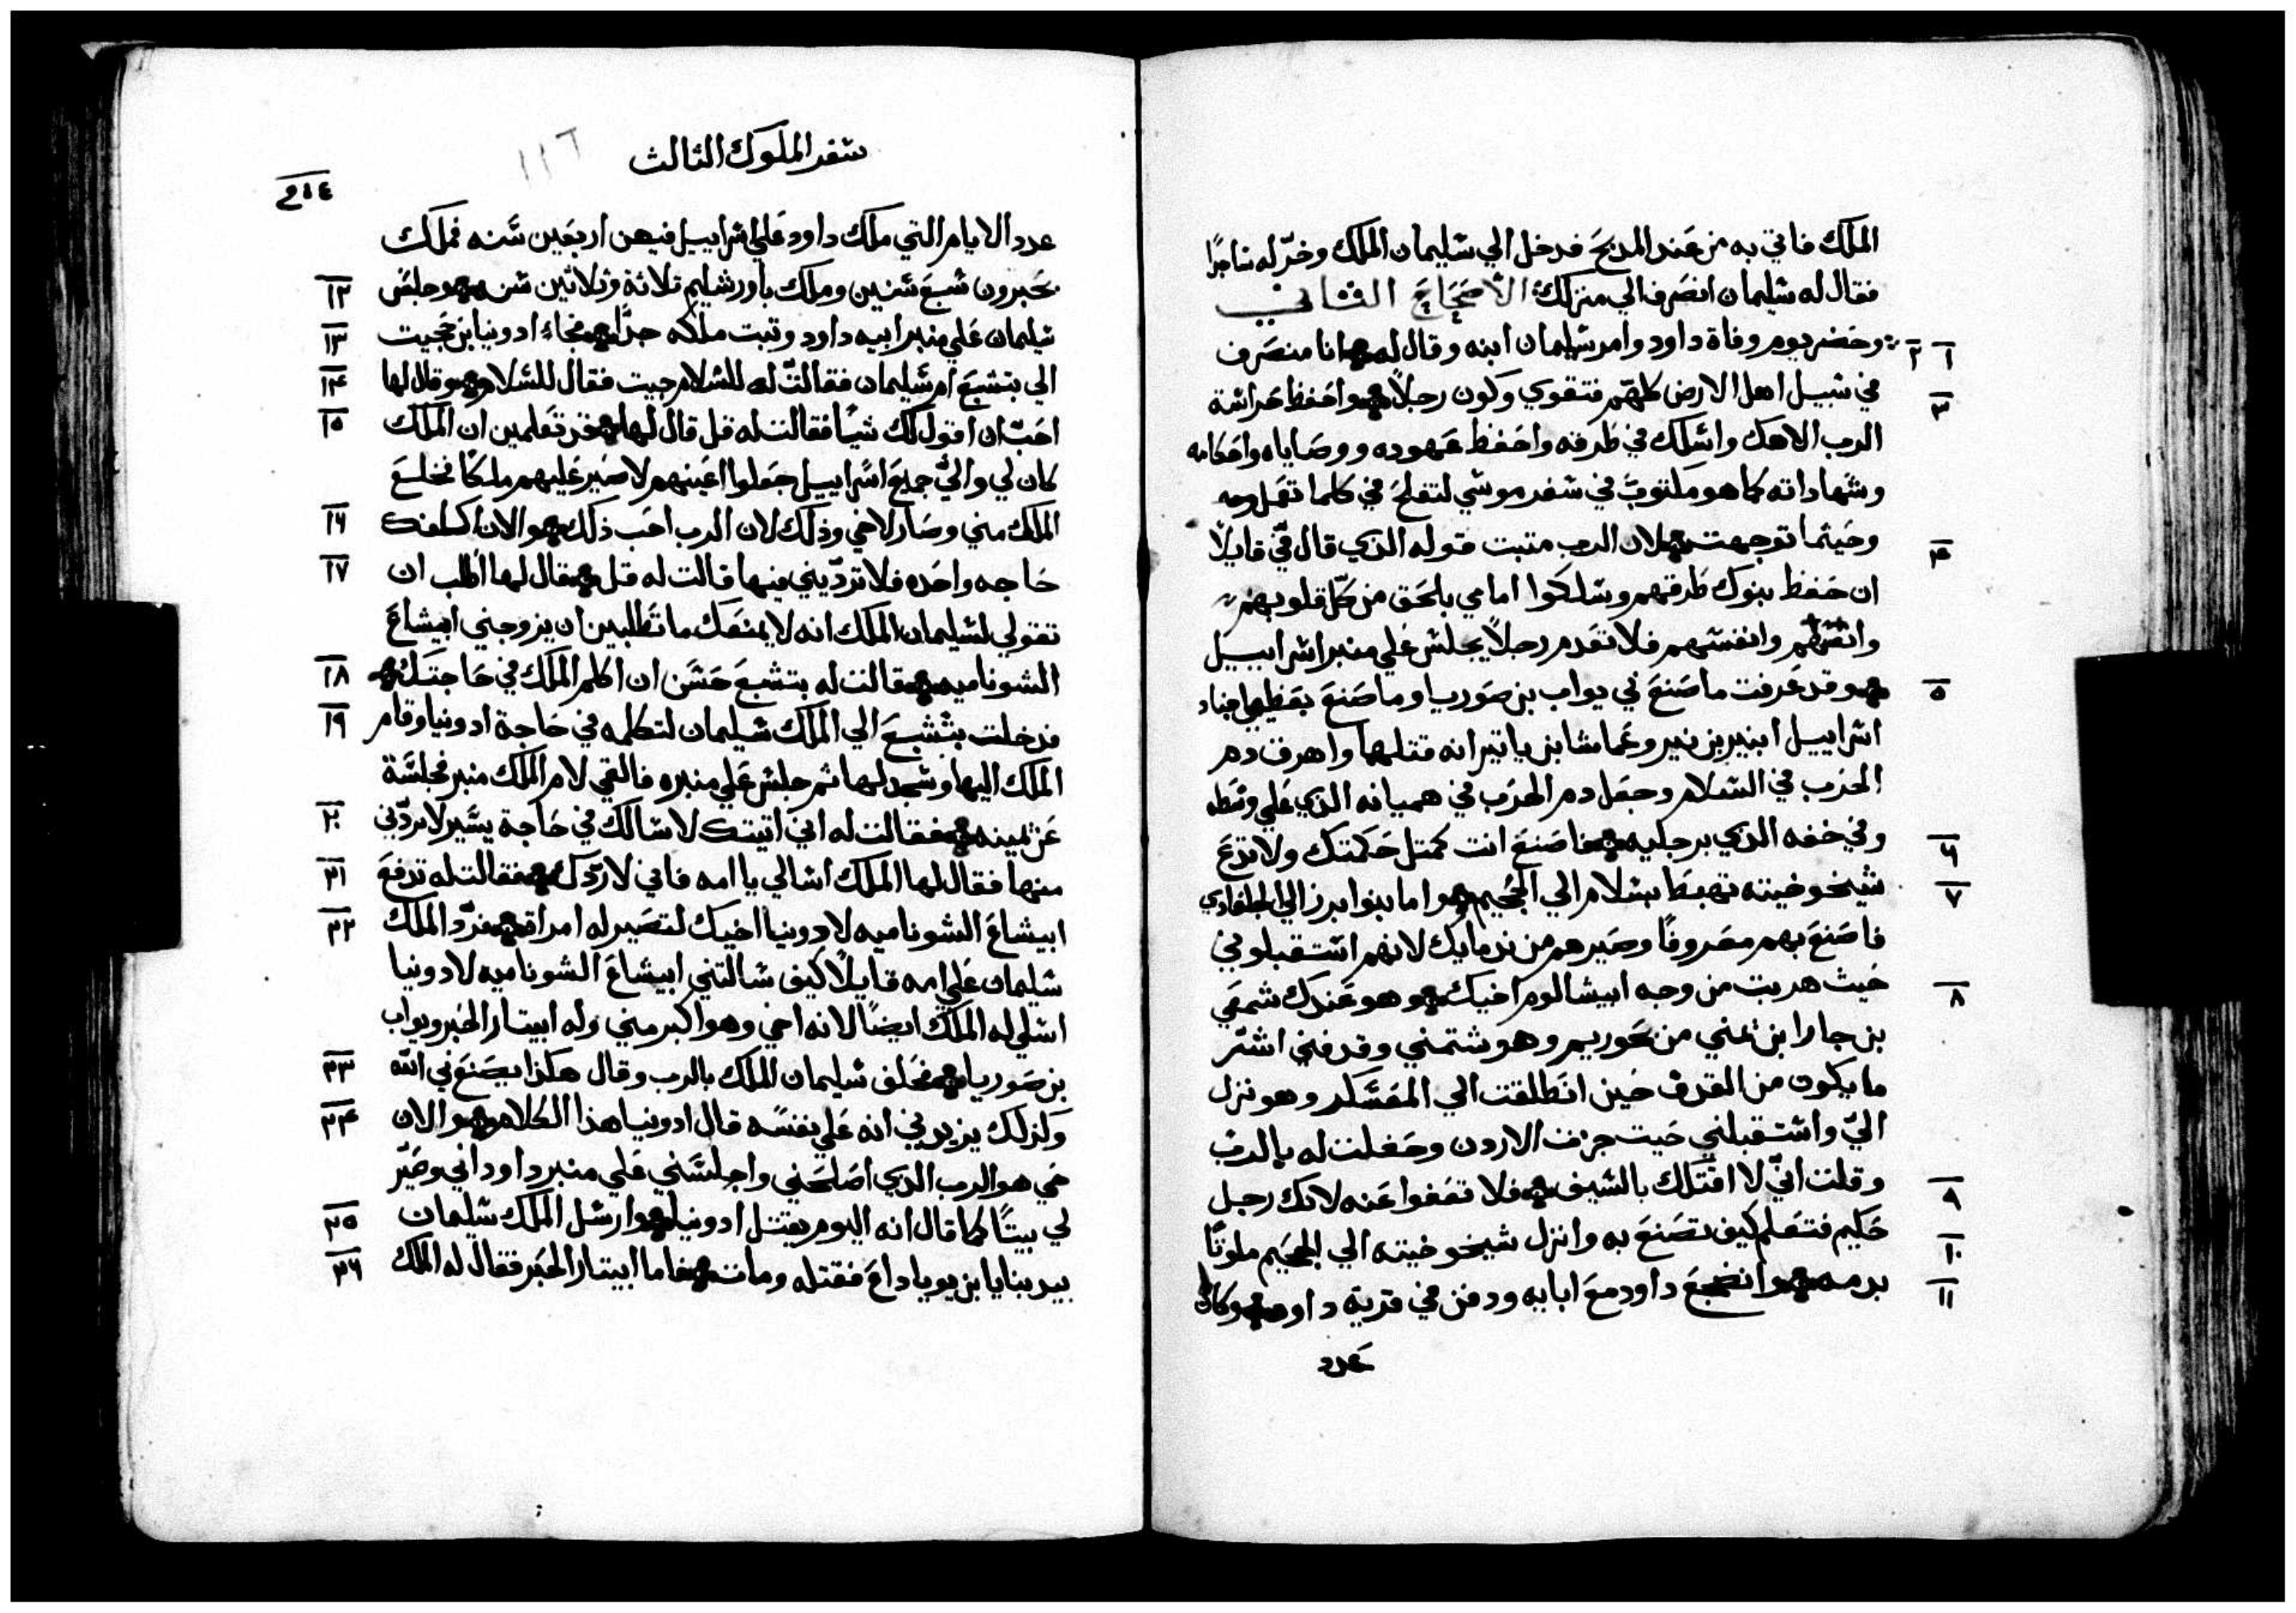 الملك فاتي به من عند المدبح فدخل الي شليمان الملك وخرّ له شاجدًا
فقال له شليمان انصرف الي منزلك الاصحاح الثاني
١ ٢ وحضر يوم وفاة داود وامر شليمان ابنه وقال له انا منصرف
٣ في شبيل اهل الارض كلهم فتقوي وكون رجلاً واحفظ حراشة
الرب الاهك واشلك في طرقه واحفظ عهوده ووصاياه واحكامه
وشهاداته كما هو مكتوبٌ في شفر موشي لتفلح في كلما تعمل
٤ وحيثما توجهت لان الرب متبت قوله الذي قال فيّ قايلاً
ان حفظ بنوك طرقهم وشلكوا امامي بالحق من كل قلوبهم
وانفشهم فلا تعدم رجلاً يجلش علي منبر اشراييل
٥ وقد عرفت ما صنع بي يواب بن صوريا وما صنع بعظيمي اجناد
اشراييل ابنير بن نير وعماشا بن ياتير انه قتلهما واهرق دم
الحرب في الشلام وجعل دم الحرب في هميانه الذي علي وشطه
٦ وفي خفه الذي برجليه فاصنع انت كمتل حكمتك ولا تدع
٧ شيخوخيته تهبط بشلام الي الجحيم واما بنوا برزالي الجلعادي
فاصنع بهم معروفًا وصيرهم من ندمايك لانهم اشتقبلوني
٨ حيث هربت من وجه ابيشالوم اخيك وهو عندك شمعي
بن جارا ابن يمني من بحوريم وهو شتمني وقدفني اشرّ
ما يكون من القدف حين انطلقت الي المعشكر وهو نزل
اليّ واشتقبلني حيت جزت الاردن وحفلت له بالرب
٩ وقلت انّي لا اقتلك بالشيف فلا تعفوا عنه لانك رجل
١٠ حكيم فتعلم كيف تصنع به وانزل شيخوخيته الي الجحيم ملوتًا
١١ بدمه وانضجع داود مع ابايه ودفن في قرية داود وكان
عدد
شفر الملوك الثالث
١١٦
عدد الايام التي ملك داود علي اشراييل فيهن اربعين شنه فملك
١٢ بحبرون شبع شنين وملك باورشليم تلاتة وتلاتين شنه وجلش
١٣ شليمان علي منبر ابيه داود وتبت ملكه جدًا فجاء ادونيا بن حجيت
١٤ الي بتشبع ام شليمان فقالت له للشلام جيت فقال للشلام وقال لها
١٥ احبّ ان اقول لك شيًا فقالت له قل قال لها قد تعلمين ان الملك
كان لي واليّ جميع اشراييل جعلوا اعينهم لاصير عليهم ملكًا فخلع
١٦ الملك مني وصار لاخي وذلك لان الرب احب ذلك والان اكلفك
١٧ حاجه واحده فلا تردّيني فيها قالت له قل قال لها اطلب ان
تقولي لشليمان الملك انه لا يمنعك ما تطلبين ان يزوجني ابيشاع
١٨ الشوناميه قالت له بتشبع حشن ان اكلم الملك في حاجتك
١٩ فدخلت بتشبع الي الملك شليمان لتكلمه في حاجة ادونيا وقام
الملك اليها وشجد لها ثم جلش علي منبره فالقي لام الملك منبر فجلشة
٢٠ عن يمينه فقالت له اني اتيتك لاشالك في حاجة يشير لا تردّني
٢١ منها فقال لها الملك اشالي يا امه فاني لا اردّك فقالت له تدفع
٢٢ ابيشاع الشوناميه لادونيا اخيك لتصير له امراة فردّ الملك
شليمان علي امه قايلاً كيف شالتني ابيشاع الشوناميه لادونيا
اشلي له الملك ايضًا لانه اخي وهو اكبر مني وله ابيتار الحبر ويواب
٢٣ بن صوريا فحلف شليمان الملك بالرب وقال هكذا يصنع بي الله
٢٤ وكذلك يزيدني انه علي نفشه قال ادونيا هذا الكلام والان
حي هو الرب الدي اصلحني واجلشني علي منبر داود ابي وصيّر
٢٥ لي بيتًا كما قال انه اليوم يقتل ادونيا وارشل الملك شليمان
٢٦ بيد بنايا ابن يوياداع فقتله ومات فاما ابيتار الحبر فقال له الملك